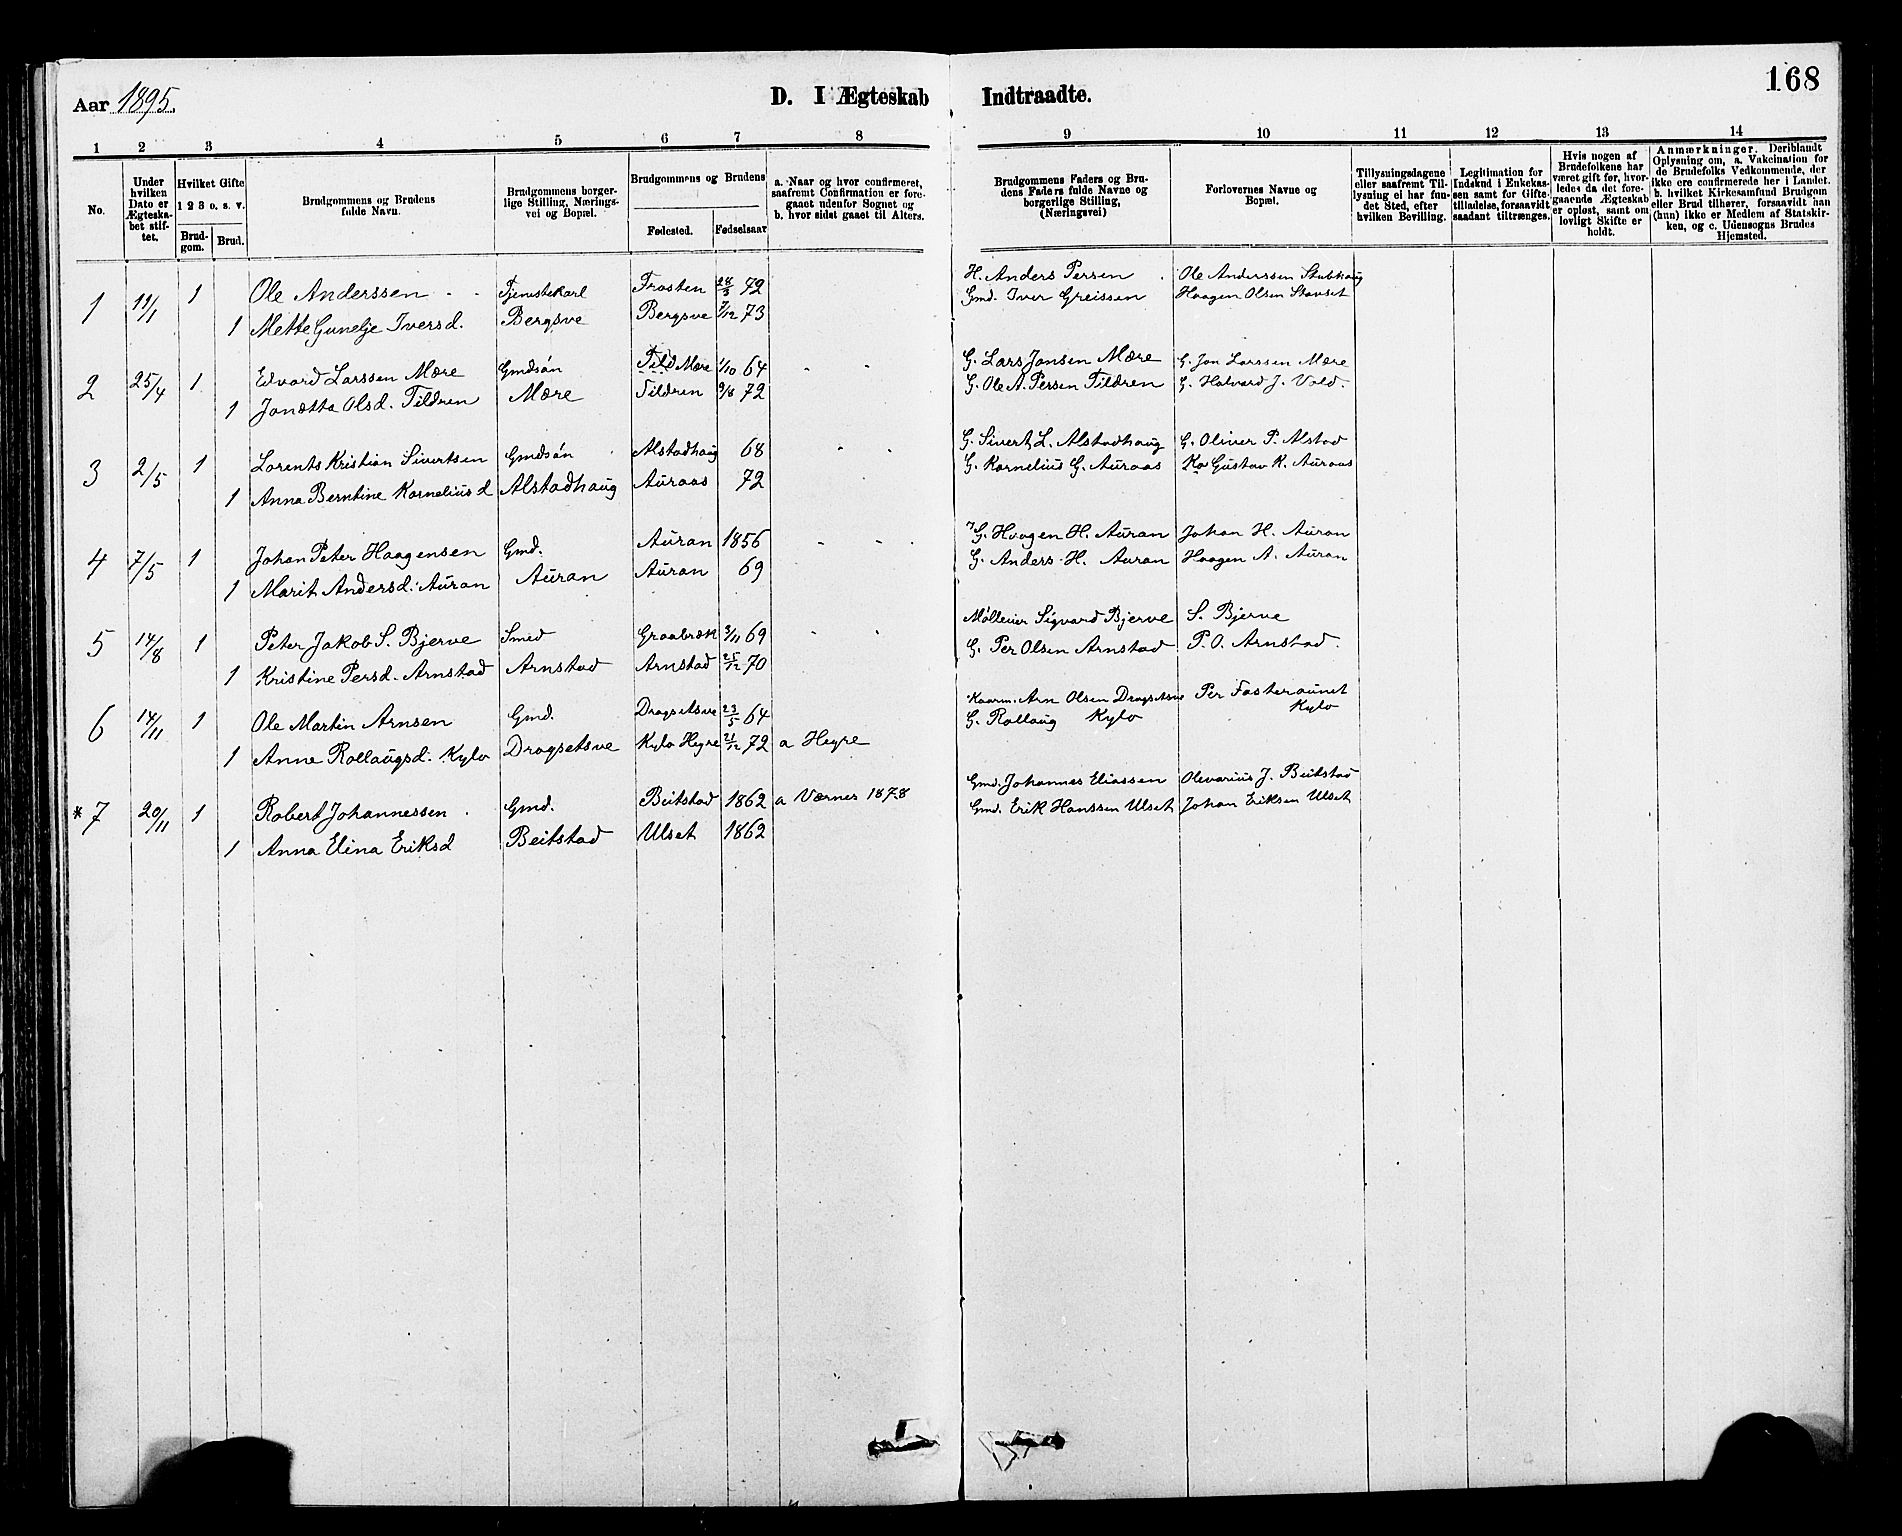 168
Aar 1895.
D. I Ægteskab Indtraadte.
1 2 3 4 5 6 7 8 9 10 11 12 13 14
No.
Under hvilken Dato er Ægteskabet stiftet.
Hvilket Gifte 1 2 3 o. s. v.
Brudgom. Brud.
Brudgommens og Brudens fulde Navn.
Brudgommens borgerlige Stilling, Næringsvei og Bopæl.
Brudgommens og Brudens
Fødested. Fødselsaar
a. Naar og hvor confirmeret, saafremt Confirmation er foregaaet udenfor Sognet og b. hvor sidst gaaet til Alters.
Brudgommens Faders og Brudens Faders fulde Navne og borgerlige Stilling, (Næringsvei)
Forlovernes Navne og Bopæl.
Tillysningsdagene eller saafremt Tillysning ei har fundet Sted, efter hvilken Bevilling.
Legitimation for Indskud i Enkekassen samt for Giftetilladelse, forsaavidt saadant tiltrænges.
Hvis nogen af Brudefolkene har været gift før, hvorledes da det foregaaende Ægteskab er opløst, samt om lovligt Skifte er holdt.
Anmærkninger. Deriblandt Oplysning om, a. Vakcination for de Brudefolks Vedkommende, der ikke ere confirmerede her i Landet. b. hvilket Kirkesamfund Brudgom eller Brud tilhører, forsaavidt han (hun) ikke er Medlem af Statskirken, og c. Udensogns Brudes Hjemsted.
1 11/1 1 Ole Anderssen Tjenestekarl Frosten 28/3 72 H. Anders Persen Ole Anderssen Stubhaug
1 Mette Gunelje Iversd. Bergsve Bergsve 7/12 73 Gmd. Iver Greissen Haagen Olsen Stavset
2 25/4 1 Edvard Larssen Mære Gmdsøn Tild Mære 1/10 64 G. Lars Jonsen Mære G. Jon Larssen Mære
1 Jonetta Olsd. Tildren Mære Tildren 9/8 72 G. Ole A. Persen Tildren G. Halvard J. Vold
3 2/5 1 Lorents Kristian Sivertsen Gmdsøn Alstadhaug 68 G. Sivert L. Alstadhaug G. Oliver P. Alstad
1 Anna Berntine Kornelius d Alstadhaug Auraas 72 G. Kornelius G. Auraas Ka Gustav K. Auraas
4 7/5 1 Johan Peter Haagensen Gmd. Auran 1856 G. Haagen H. Auran Johan H. Auran
1 Marit Andersd. Auran Auran Auran 69 G. Anders H. Auran Haagen A. Auran
5 14/8 1 Peter Jakob S. Bjerve Smed Graabræk 3/11 69 Mølleeier Sigvard Bjerve S. Bjerve
1 Kristine Persd. Arnstad Arnstad Arnstad 25/12 70 G. Per Olsen Arnstad P. O. Arnstad.
6 14/11 1 Ole Martin Arnsen Gmd. Dragsetsve 23/5 64 Kaarm. Arn Olsen Dragsetsve Per Fosteraunet
1 Anne Rollaugsd. Kylo Dragsetsve Kylo Hegre 21/12 72 a Hegre G. Rollaug Kylo Kylo
*7 20/11 1 Robert Johannessen Gmd. Beitstad 1862 a Værnes 1878 Gmd. Johannes Eliassen Olevarius J. Beitstad
1 Anna Elina Eriksd Beitstad Ulset 1862 Gmd. Erik Hanssen Ulset Johan Eriksen Ulset